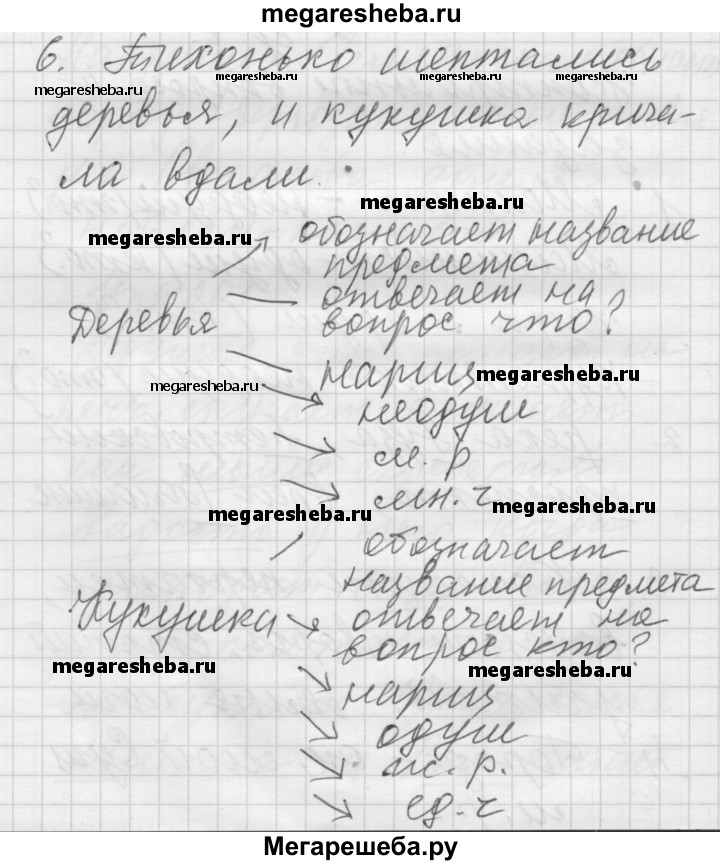 megaresheba.ru
6. Тихонько шептались
megaresheba.ru megaresheba.ru megaresheba.ru
megaresheba.ru
деревья, и кукушка крича-
ла вдали.
megaresheba.ru
обозначает название
megaresheba.ru
предмета
отвечает на
Деревья вопрос что?
нариц
megaresheba.ru
megaresheba.ru
неодуш
м. р
мн. ч
megaresheba.ru
megaresheba.ru
обозначает
название предмета
Кукушка отвечает на
вопрос кто?
megaresheba.ru
megaresheba.ru
нариц
одуш
ж. р.
ед. ч
Мегарешеба.ру